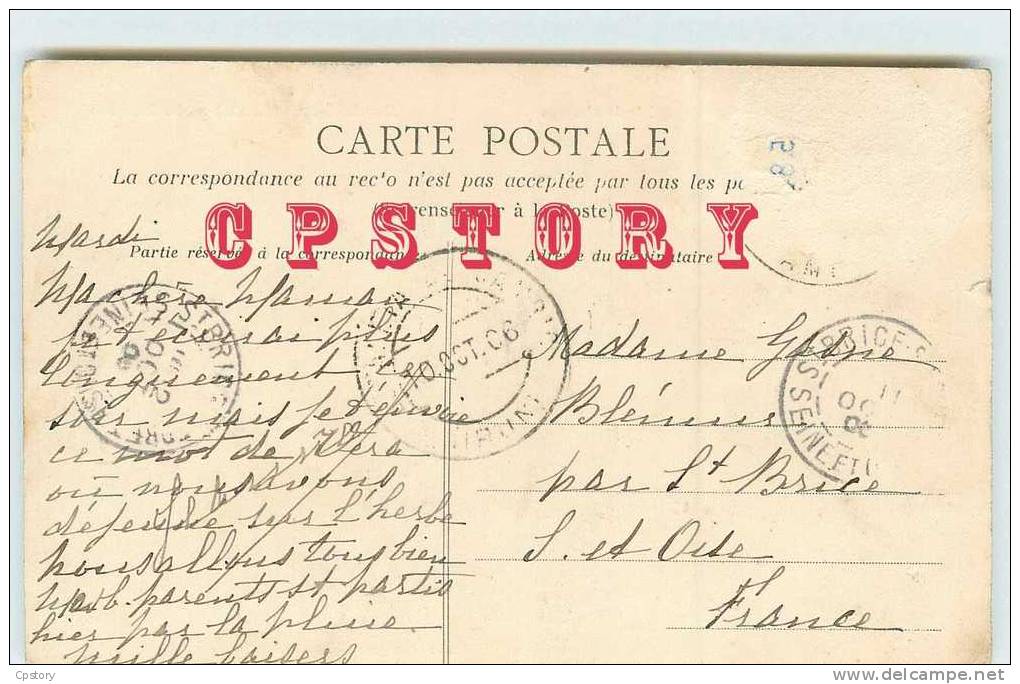 CARTE POSTALE
La correspondance au rec'o n'est pas acceptée par tous les pa
à la Poste)
CPSTORY
28
Partie réservée à la correspondance
Adresse du destinataire
Mardi
Ma chère Maman
je t'écrirai plus
longuement
soir mais je t'envoie
ce mot de
où nous avons
déjeuné sur l'herbe
nous allons tous bien
parents st partis
hier par la pluie
mille baisers
10.OCT.06
Madame
par St Brice
S. et Oise
France
ST BRICE-S
SEINE ET
11
Cpstory
delcampe.net